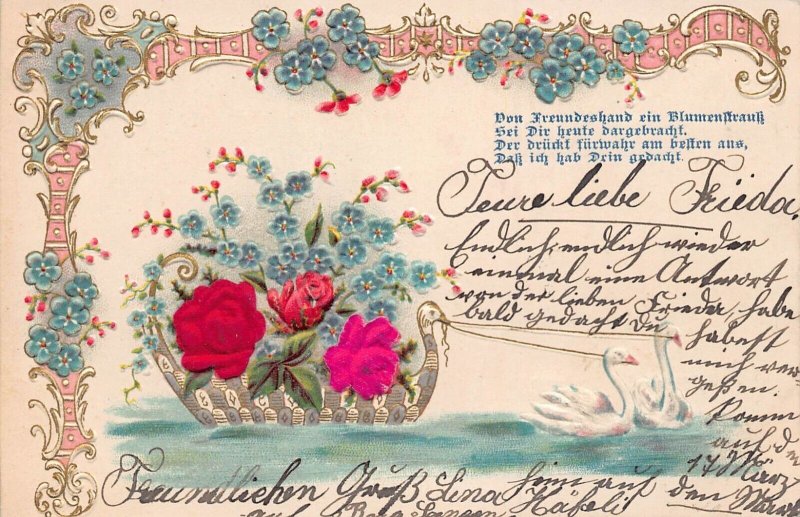 Von Freundeshand ein Blumenstrauß
Sei Dir heute dargebracht.
Der drückt fürwahr am besten aus,
Daß ich hab Dein gedacht.
Teure liebe Frieda.
Endlich, endlich wieder
einmal eine Antwort
von der lieben Frieda, habe
bald gedacht du
habest
mich ver
geßen.
Komm
auf den
17 März
Freundlichen Gruß Lina
heim auf
den Markt
Häfeli
auf Berg